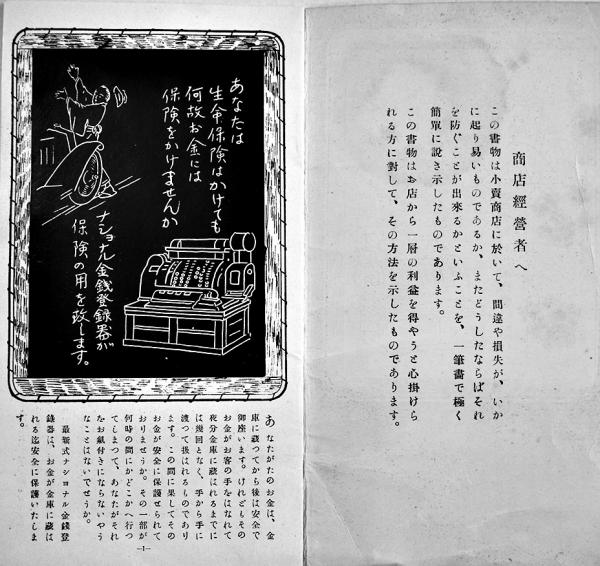 商店經營者へ
この書物は小賣商店に於いて、間違や損失が、いか
に起り易いものであるか、またどうしたならばそれ
を防ぐことが出來るかといふことを、一筆書で極く
簡單に說き示したものであります。
この書物はお店から一層の利益を得やうと心掛けら
れる方に對して、その方法を示したものであります。
あなたは
生命保險はかけても
何故お金には
保險をかけませんか
ナショナル金錢登錄器が
保險の用を致します。
あなたがたのお金は、金
庫に蔵つてから後は安全で
御座います。けれどもその
お金がお客の手をはなれて
夜分金庫に蔵はれるまでに
は幾回となく、手から手に
渡つて扱はれるものであり
ます。この間に果してその
お金が安全に保護せられて
おりませうか。その一部が
何時の間にかどこかへ行つ
てしまつて、あなたがそれ
をお氣付きにならないやう
なことはないでせうか。
最新式ナショナル金錢登
錄器は、お金が金庫に蔵は
れる迄安全に保護いたしま
す。
—1—